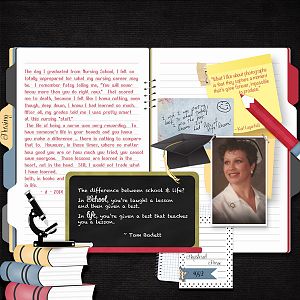 The day I graduated from Nursing School, I felt so
totally unprepared for what my nursing career may
be. I remember Patsy telling me, "You will never
know more than you do right now." That scared
me to death, because I felt like I knew nothing, even
though, deep down, I knew I had learned so much.
After all, my grades told me I was pretty smart
at this nursing "stuff."
The life of being a nurse was very rewarding. To
have someone's life in your hands and you know
you make a difference, there is nothing to compare
that to. However, in those times, where no matter
how good you are or how much you tried, you cannot
save everyone. Those lessons are learned in the
heart, not in the head. Still, I would not trade what
I have learned,
both, in books and
in
Nursing
"What I like about photographs
is that they capture a moment
that's gone forever, impossible
to reproduce."
Karl Lagerfeld
The difference between school & life?
In School, you're taught a lesson
and then given a test.
In life, you're given a test that teaches
you a lesson.
~ Tom Bodett